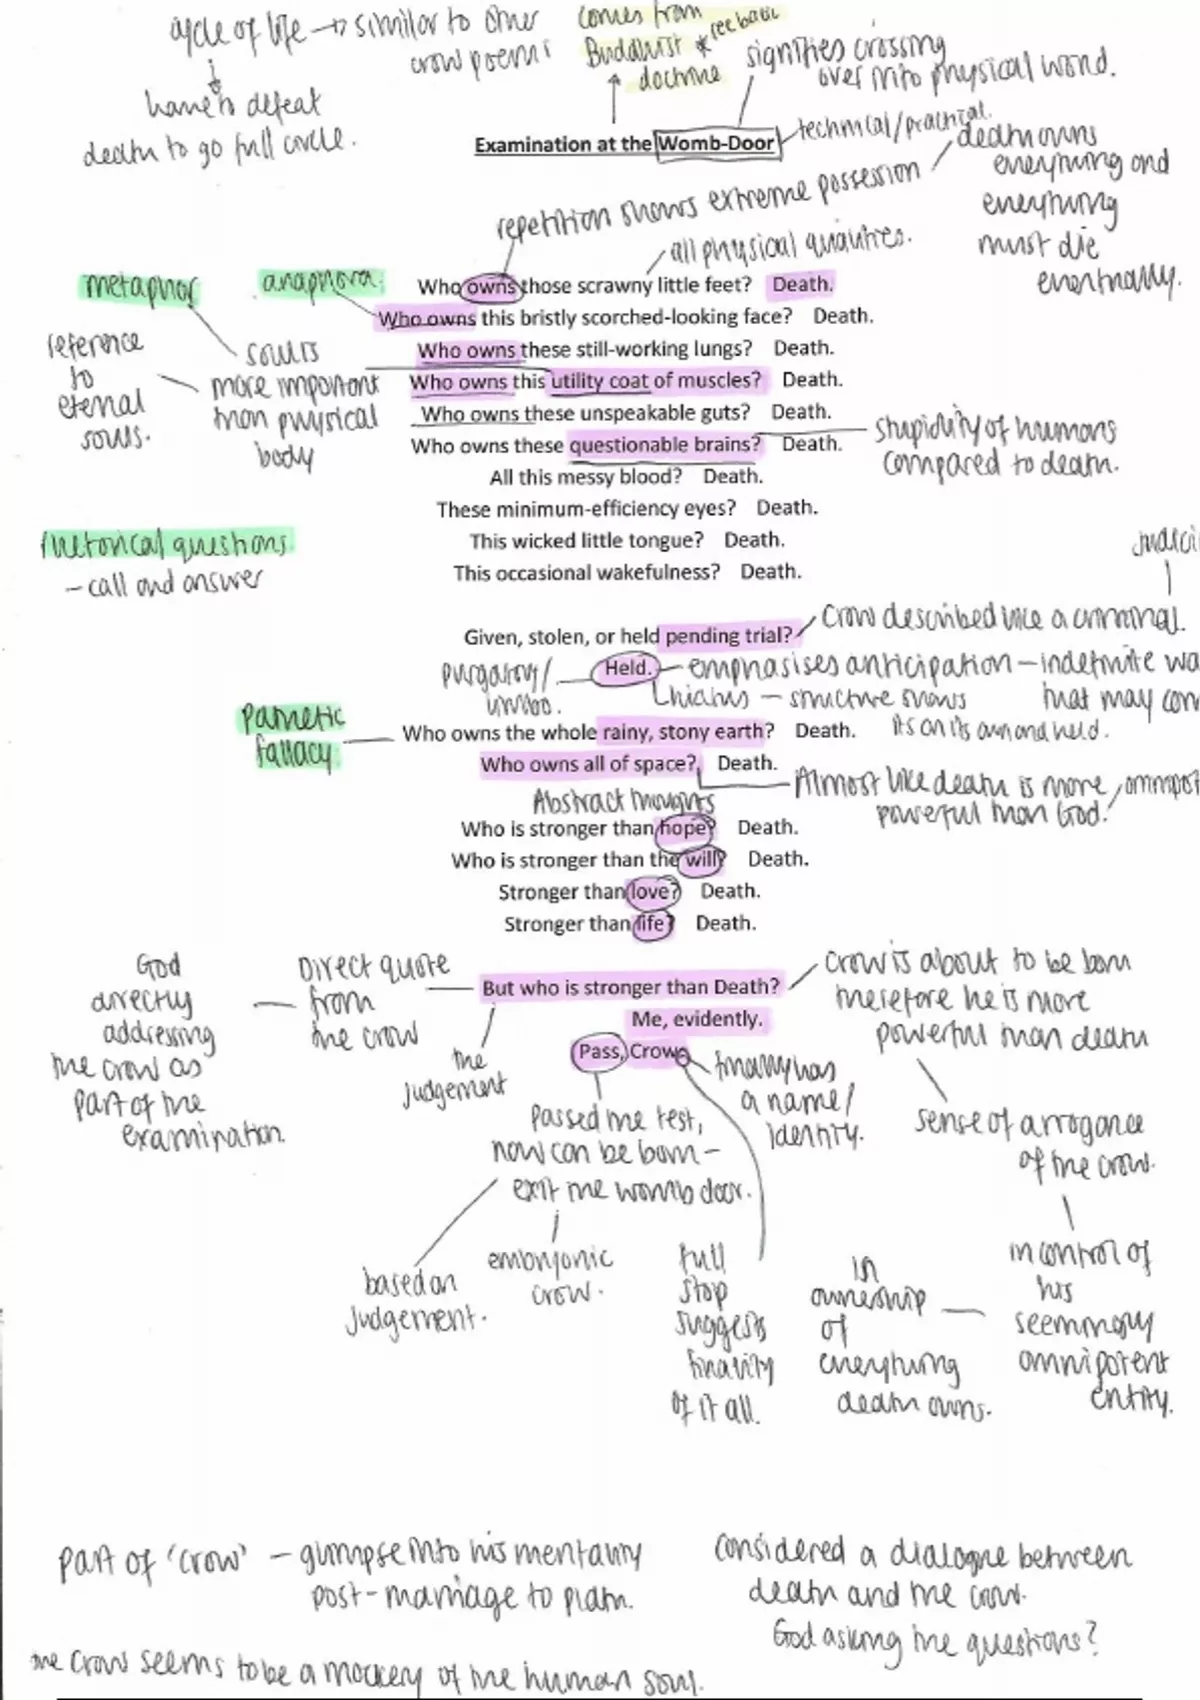 cycle of life → similar to other
crow poems
have to defeat
death to go full circle.
comes from
Buddhist *
doctrine
signifies crossing
over into physical world.
Examination at the Womb-Door
technical/practical.
repetition shows extreme possession
death owns
everything and
everything
must die
eventually.
all physical qualities.
metaphor
anaphora.
Who owns those scrawny little feet? Death.
Who owns this bristly scorched-looking face? Death.
Who owns these still-working lungs? Death.
Who owns this utility coat of muscles? Death.
Who owns these unspeakable guts? Death.
Who owns these questionable brains? Death.
All this messy blood? Death.
These minimum-efficiency eyes? Death.
This wicked little tongue? Death.
This occasional wakefulness? Death.
reference
to
eternal
souls.
soul is
more important
than physical
body
stupidity of humans
compared to death.
rhetorical questions
- call and answer
Given, stolen, or held pending trial?
Crow described like a criminal.
Held.
purgatory/
limbo.
emphasises anticipation - indefinite wa
that may com
hiatus - structure shows
its on its own and held.
pathetic
fallacy.
Who owns the whole rainy, stony earth? Death.
Who owns all of space? Death.
Almost like death is more
powerful than God.
Abstract thoughts
Who is stronger than hope? Death.
Who is stronger than the will? Death.
Stronger than love? Death.
Stronger than life? Death.
But who is stronger than Death?
Me, evidently.
Pass, Crow.
Direct quote
from
the crow
God
directly
addressing
the crow as
part of the
examination.
the
judgement
crow is about to be born
therefore he is more
powerful than death
finally has
a name/
identity.
sense of arrogance
of the crow.
Passed the test,
now can be born -
exit the womb door.
based on
judgement.
embryonic
crow.
full
stop
suggests
finality
of it all.
in
ownership
of
everything
death owns.
in control of
his
seemingly
omnipotent
entity.
part of 'crow' - glimpse into his mentality
post-marriage to plath.
considered a dialogue between
death and the crow.
God asking the questions?
the crow seems to be a mockery of the human soul.